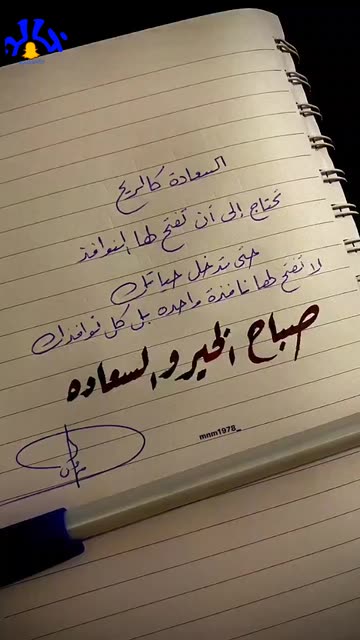 السعادة كالريح
تحتاج إلى أن تفتح لها النوافذ
حتى تدخل حياتك
لا تفتح لها نافذة واحده بل كل نوافذك
صباح الخير والسعاده
mnm1978_